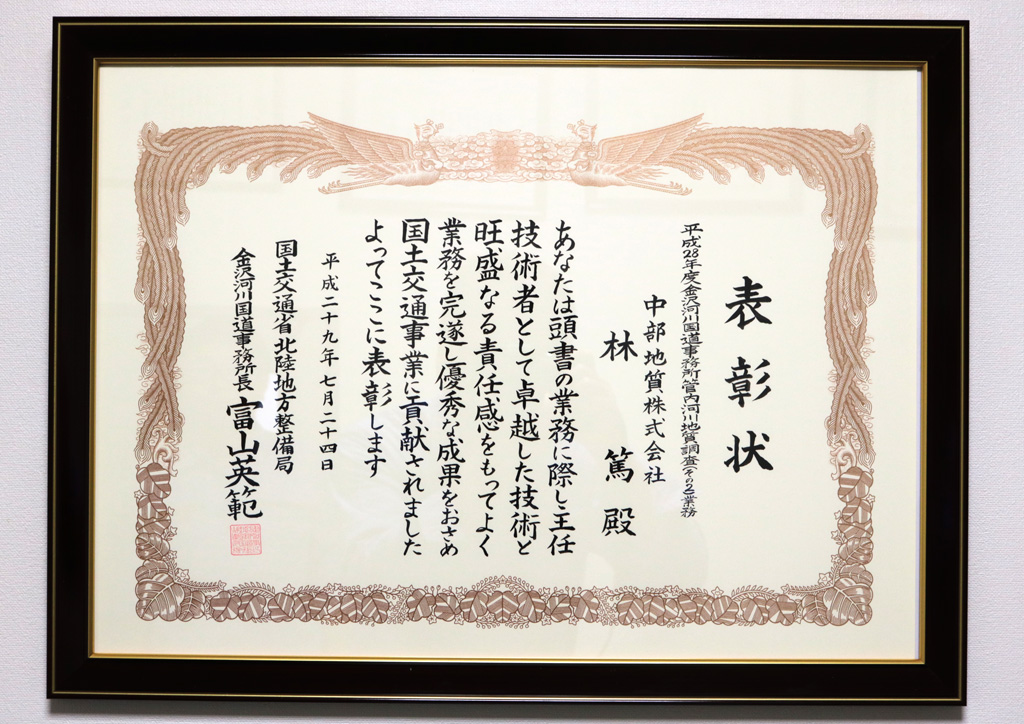 表彰状
平成28年度金沢河川国道事務所管内河川地質調査(その2)業務
中部地質株式会社
林 篤 殿
あなたは頭書の業務に際し主任
技術者として卓越した技術と
旺盛なる責任感をもってよく
業務を完遂し優秀な成果をおさめ
国土交通事業に貢献されました
よってここに表彰します
平成二十九年七月二十四日
国土交通省北陸地方整備局
金沢河川国道事務所長 富山英範